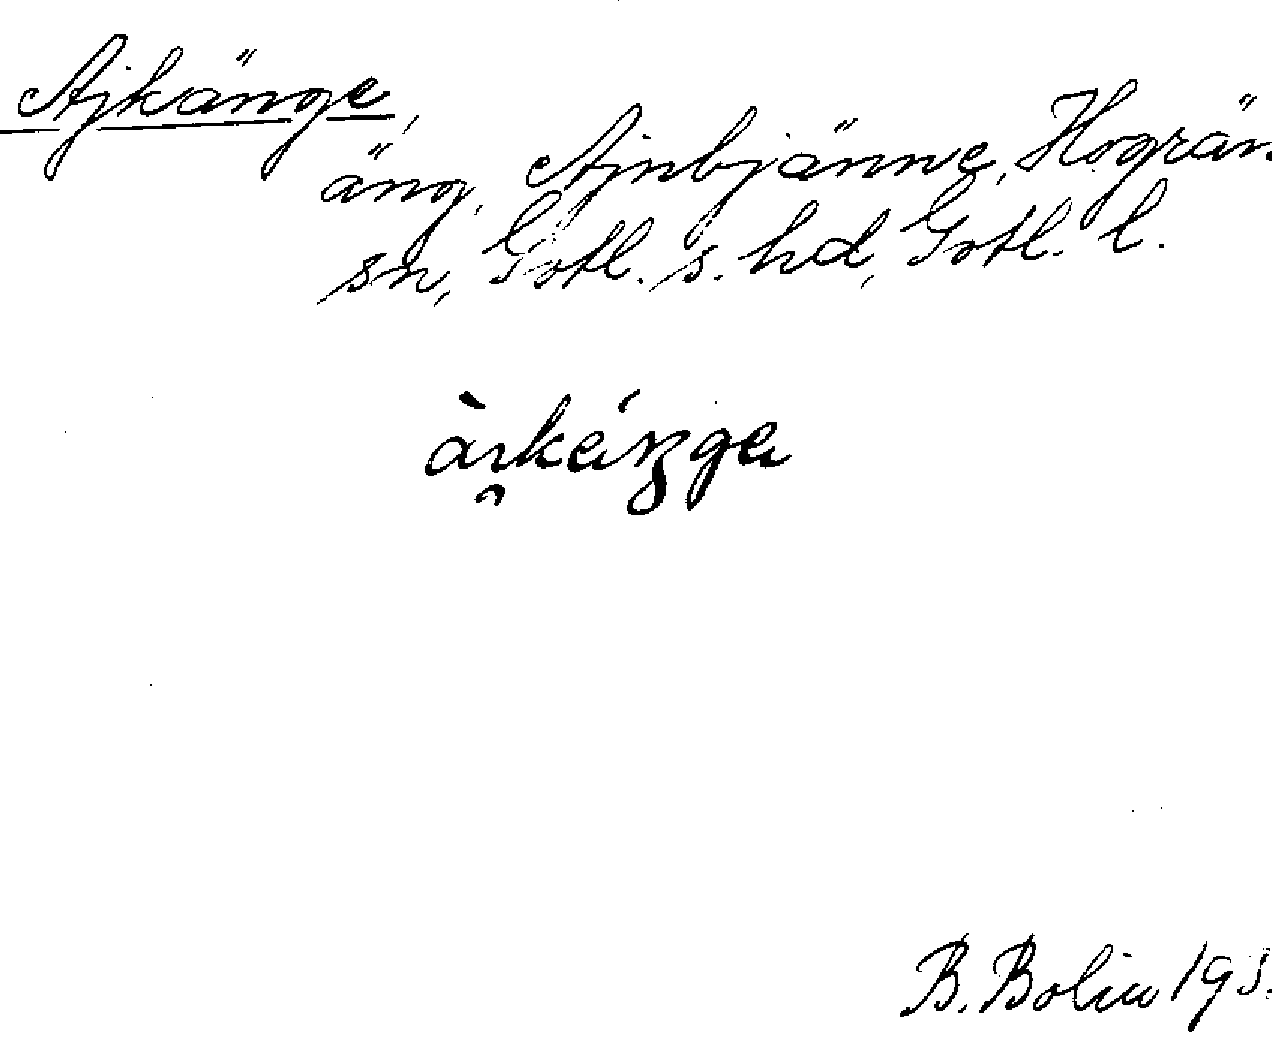 Ajkänge,
äng, Ajnbjänne, Hogrän
sn, Gotl. s. hd, Gotl. l.
B. Bolin 193